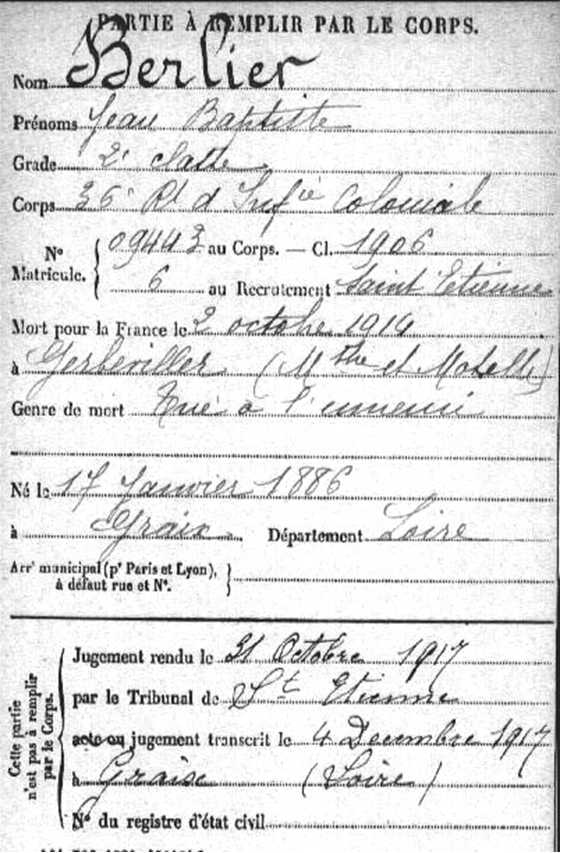 PARTIE À REMPLIR PAR LE CORPS.
Nom Berlier
Prénoms Jean Baptiste
Grade 2e classe
Corps 36e Rt d'Infie Coloniale
No Matricule. { 09443 au Corps. — Cl. 1906
6 au Recrutement Saint Etienne
Mort pour la France le 2 octobre 1914
à Gerbéviller (Mthe et Moselle)
Genre de mort Tué à l'ennemi
Né le 17 Janvier 1886
à Graix Département Loire
Arrt municipal (pr Paris et Lyon),
à défaut rue et No. }
Cette partie n'est pas à remplir par le Corps.
Jugement rendu le 31 Octobre 1917
par le Tribunal de St Etienne
acte ou jugement transcrit le 4 Decembre 1917
à Graise (Loire)
No du registre d'état civil